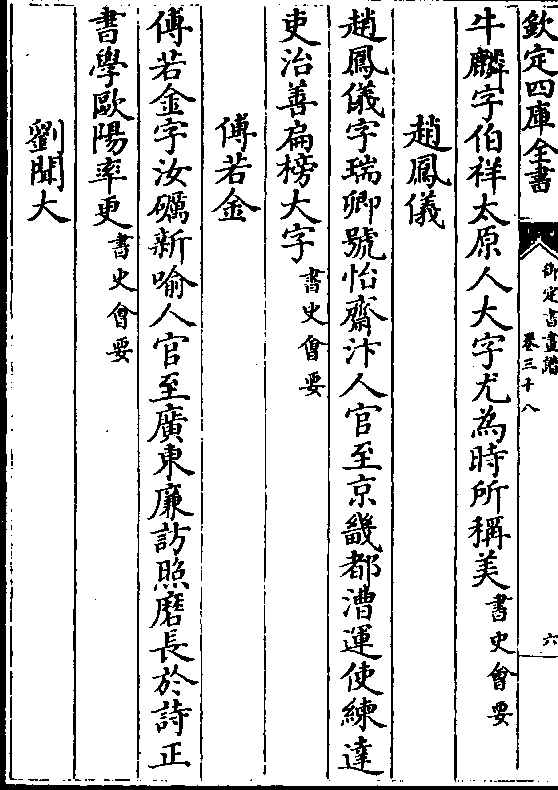 欽定四庫全書
御定書畫譜
卷三十八
六
牛麟字伯祥太原人大字尤為時所稱美書史會要
趙鳳儀
趙鳳儀字瑞卿號怡齋汴人官至京畿都漕運使練達
吏治善扁榜大字書史會要
傅若金
傅若金字汝礪新喻人官至廣東廉訪照磨長於詩正
書學歐陽率更書史會要
劉聞大